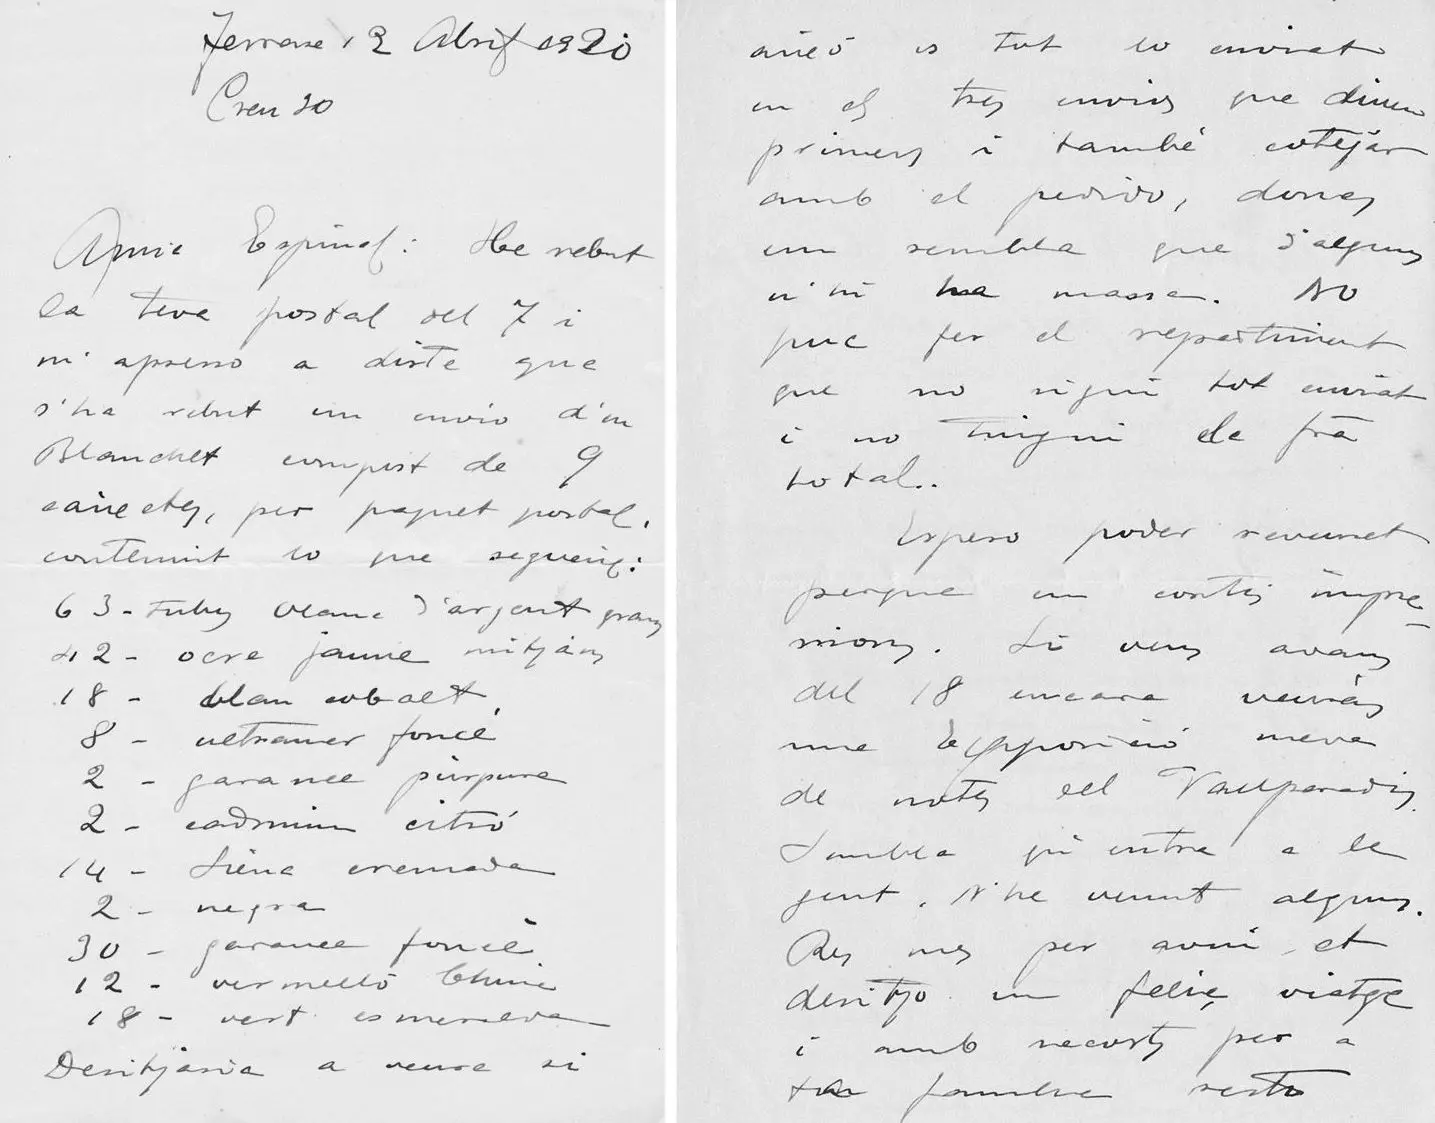 Terrassa 12 Abril 1920
Creu 20
Amic Espinal: He rebut
la teva postal del 7 i
m'apresso a dirte que
s'ha rebut un envio d'en
Blanchet compost de 9
caixetes, per paquet postal,
contenint lo que segueix:
63 - tubs blanc d'argent grans
42 - ocre jaune mitjàns
18 - blau cobalt,
8 - ultramar foncé
2 - garance púrpura
2 - cadmium citró
14 - Siena cremada
2 - negra
30 - garance foncé
12 - vermelló Chine
18 - vert esmeralda
Desitjaria a veure si
això es tot lo enviat
en els tres envios que diuen
primers i també cotejàr
amb el pedido, donçs
em sembla que d'alguns
n'hi ha massa. No
puc fer el repartiment
que no sigui tot enviat
i no tingui de fra
total..
Espero poder reveuret
perque em contis impre-
sions. Si vens avans
del 18 encara veuràs
una Exposició meva
de notes del Vallparadis.
Sembla qu'entra a la
gent. N'he venut alguns.
Res mes per avui et
desitjo un feliç viatge
i amb records per a
ta familia resto